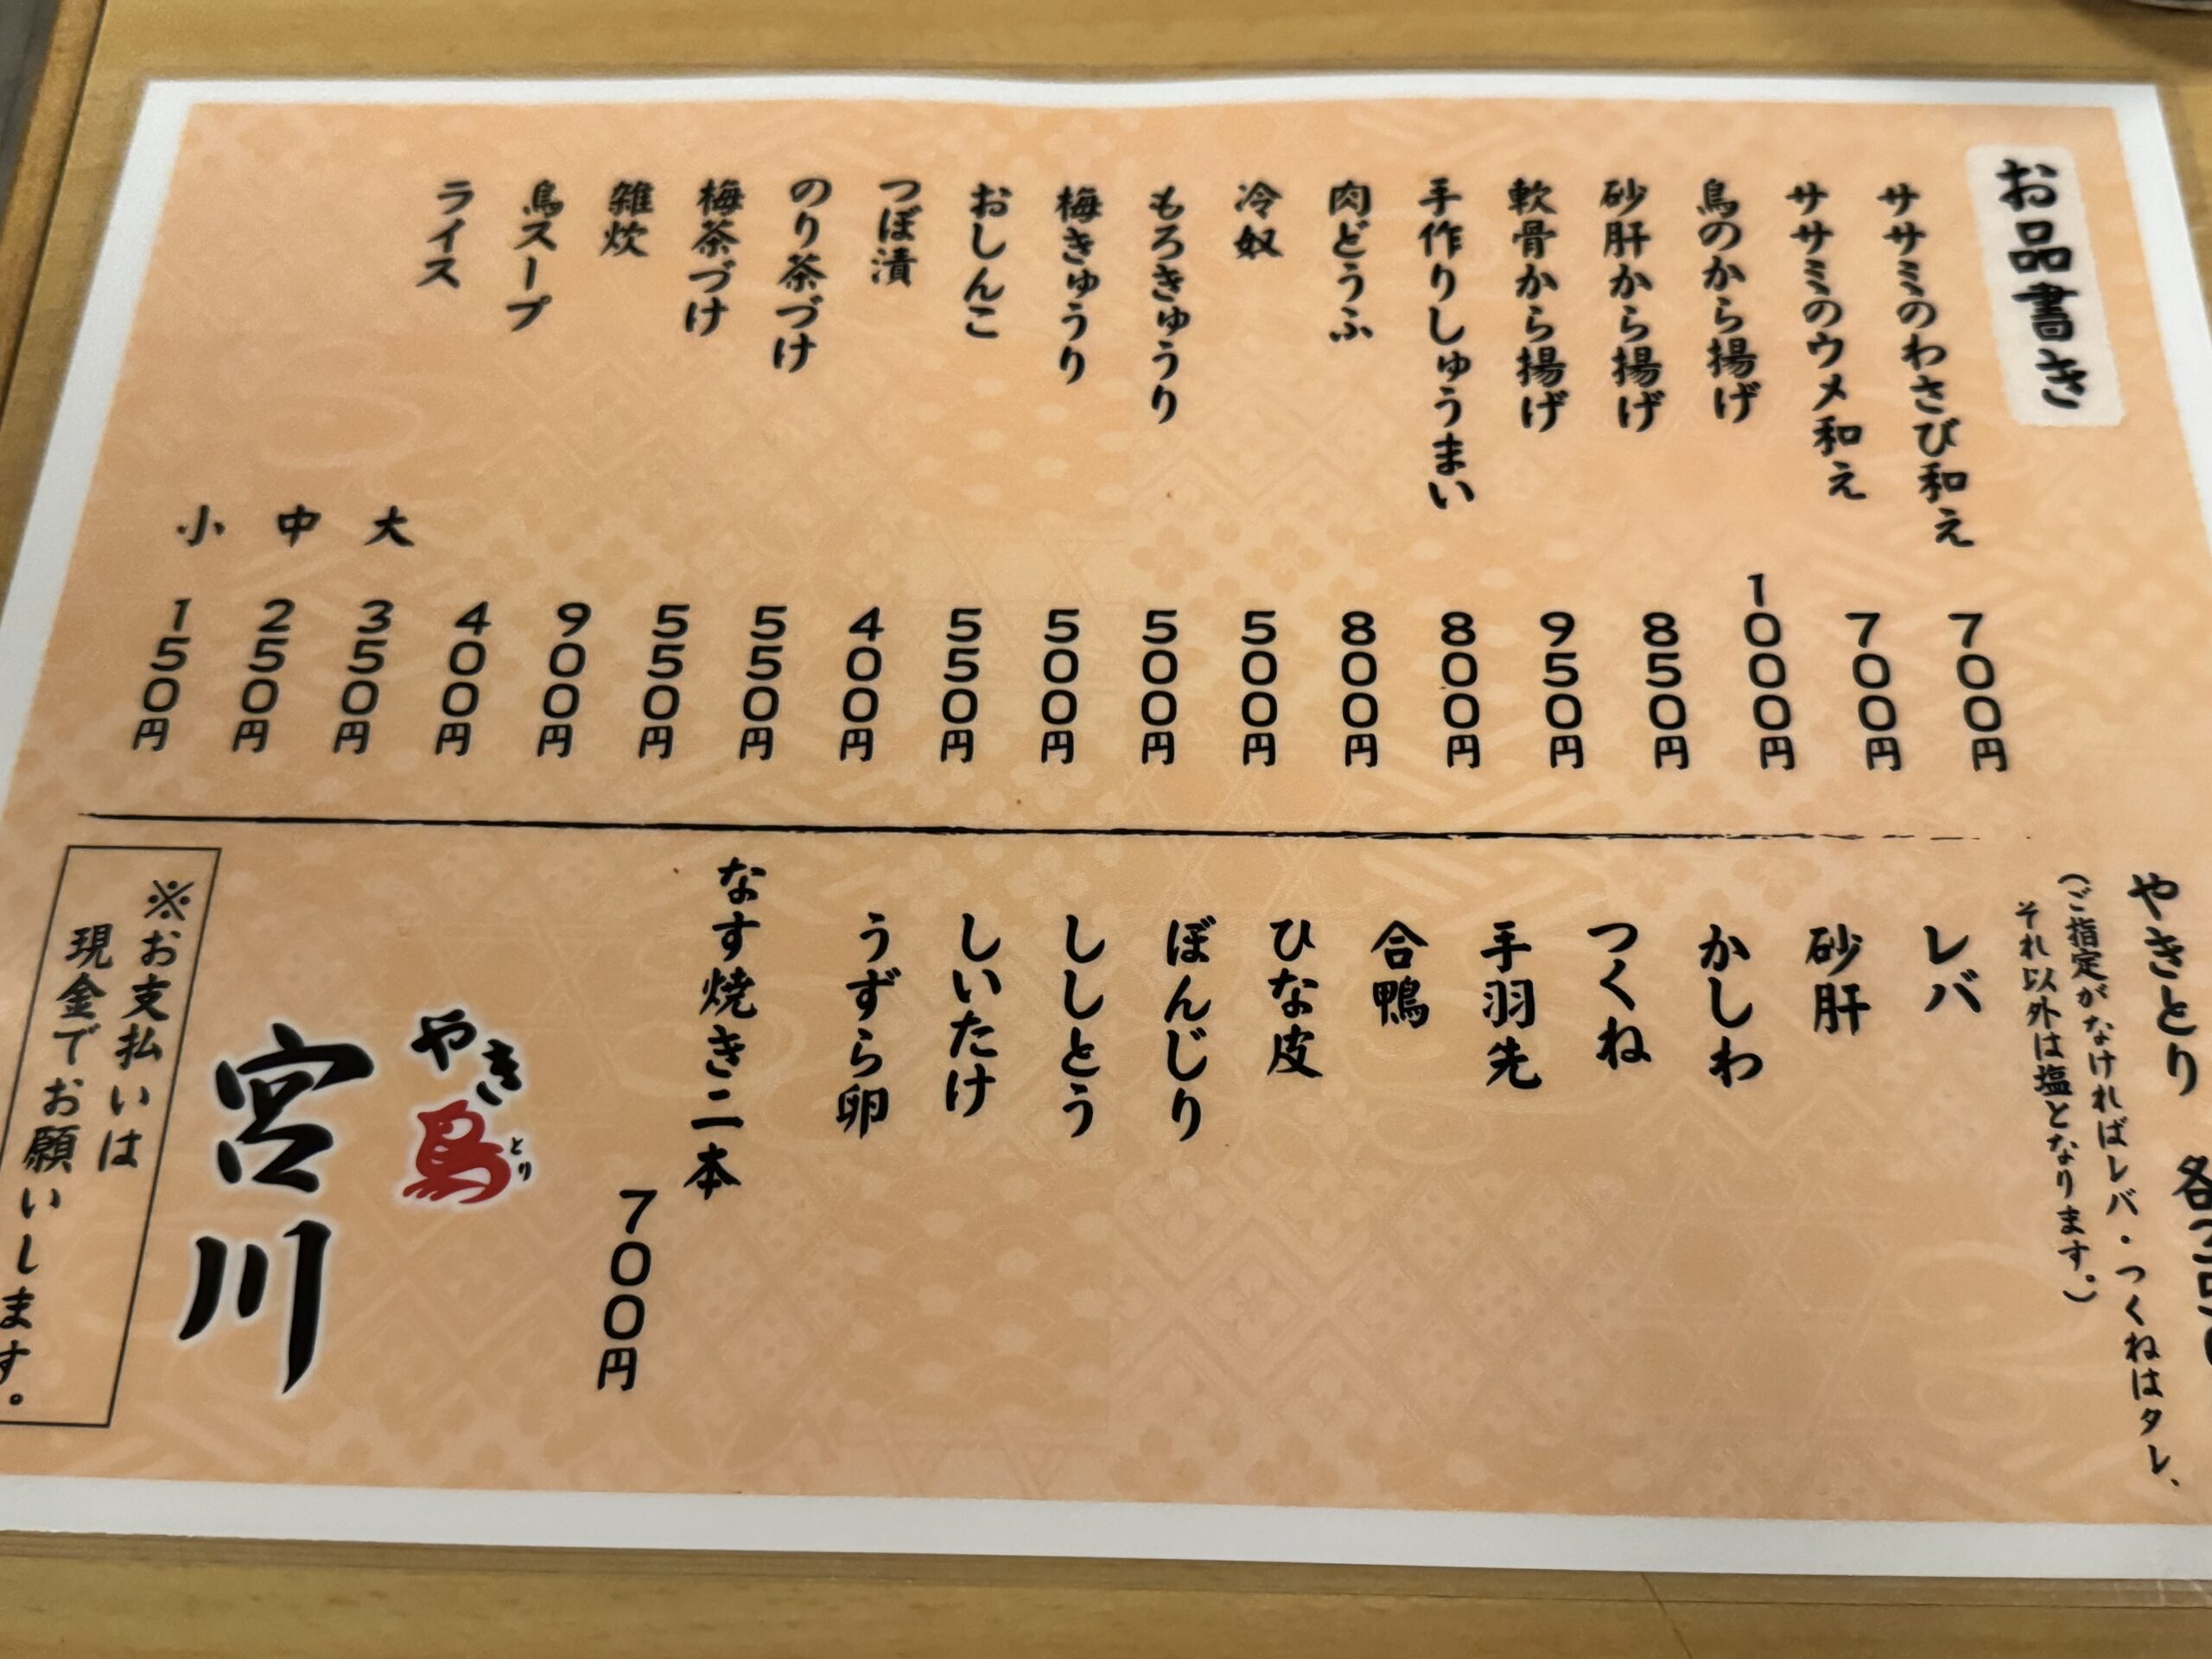 お品書き
ササミのわさび和え 700円
ササミのウメ和え 700円
鳥のから揚げ 1000円
砂肝から揚げ 850円
軟骨から揚げ 950円
手作りしゅうまい 800円
肉どうふ 800円
冷奴 500円
もろきゅうり 500円
梅きゅうり 500円
おしんこ 550円
つぼ漬 400円
のり茶づけ 550円
梅茶づけ 550円
雑炊 900円
鳥スープ 400円
ライス 大 350円
中 250円
小 150円
やきとり 各
(ご指定がなければレバ・つくねはタレ、
それ以外は塩となります。)
レバ
砂肝
かしわ
つくね
手羽先
合鴨
ひな皮
ぼんじり
ししとう
しいたけ
うずら卵
なす焼き二本 700円
やき鳥
とり
宮川
※お支払いは
現金でお願いします。